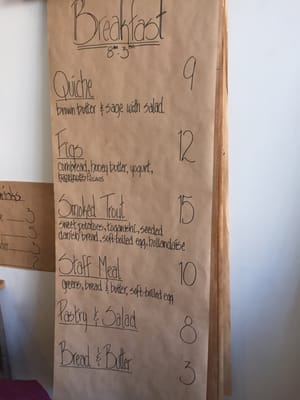 Breakfast
8-3
Quiche 9
brown butter & sage with salad
Figs 12
cornbread, honey butter, yogurt,
Smoked Trout 15
sweet potatoes, togarashi, seeded
danish bread, soft-boiled egg, hollandaise
Staff Meal 10
greens, bread & butter, soft-boiled egg
Pastry & Salad 8
Bread & Butter 3